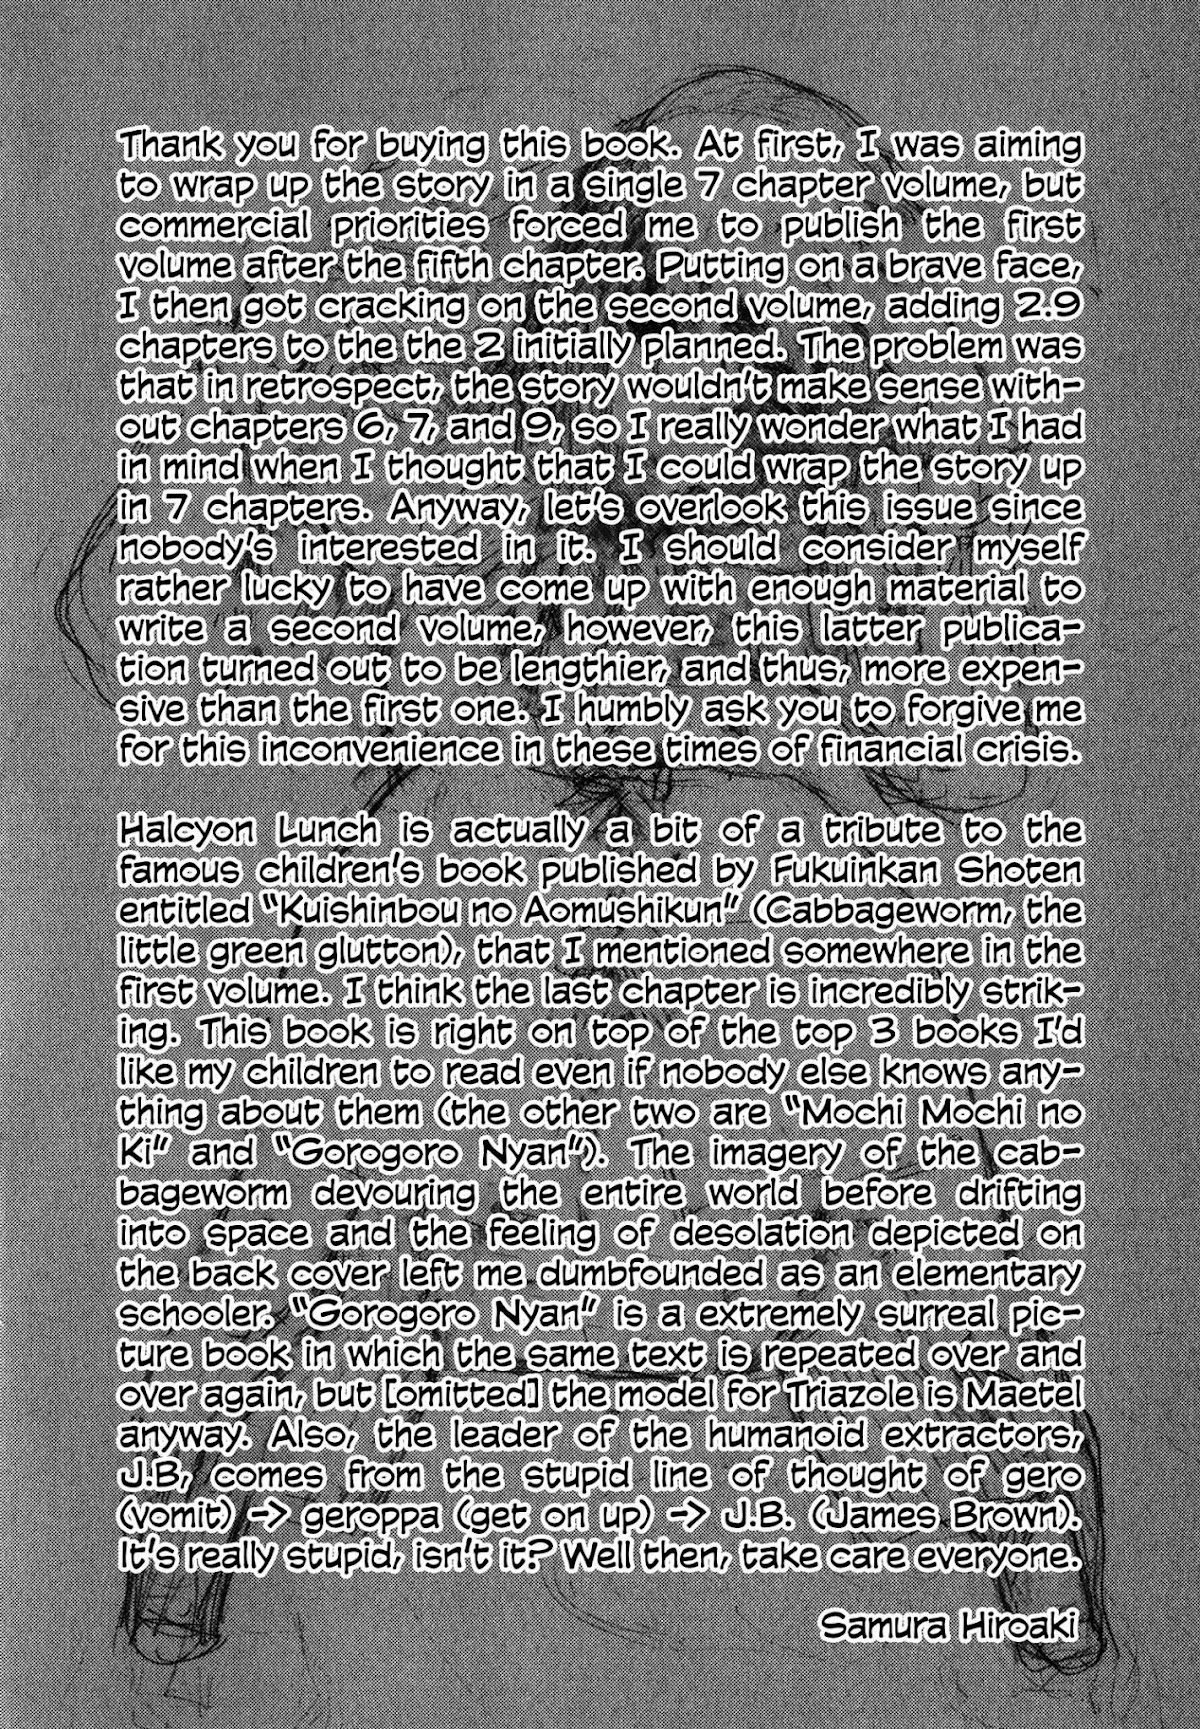 Thank you for buying this book. At first, I was aiming
to wrap up the story in a single 7 chapter volume, but
commercial priorities forced me to publish the first
volume after the fifth chapter. Putting on a brave face,
I then got cracking on the second volume, adding 2.9
chapters to the the 2 initially planned. The problem was
that in retrospect, the story wouldn't make sense with-
out chapters 6, 7, and 9, so I really wonder what I had
in mind when I thought that I could wrap the story up
in 7 chapters. Anyway, let's overlook this issue since
nobody's interested in it. I should consider myself
rather lucky to have come up with enough material to
write a second volume, however, this latter publica-
tion turned out to be lengthier, and thus, more expen-
sive than the first one. I humbly ask you to forgive me
for this inconvenience in these times of financial crisis.
Halcyon Lunch is actually a bit of a tribute to the
famous children's book published by Fukuinkan Shoten
entitled "Kuishinbou no Aomushikun" (Cabbageworm, the
little green glutton), that I mentioned somewhere in the
first volume. I think the last chapter is incredibly strik-
ing. This book is right on top of the top 3 books I'd
like my children to read even if nobody else knows any-
thing about them (the other two are "Mochi Mochi no
Ki" and "Gorogoro Nyan"). The imagery of the cab-
bageworm devouring the entire world before drifting
into space and the feeling of desolation depicted on
the back cover left me dumbfounded as an elementary
schooler. "Gorogoro Nyan" is a extremely surreal pic-
ture book in which the same text is repeated over and
over again, but [omitted] the model for Triazole is Maetel
anyway. Also, the leader of the humanoid extractors,
J.B, comes from the stupid line of thought of gero
(vomit) -> geroppa (get on up) -> J.B. (James Brown).
It's really stupid, isn't it? Well then, take care everyone.
Samura Hiroaki